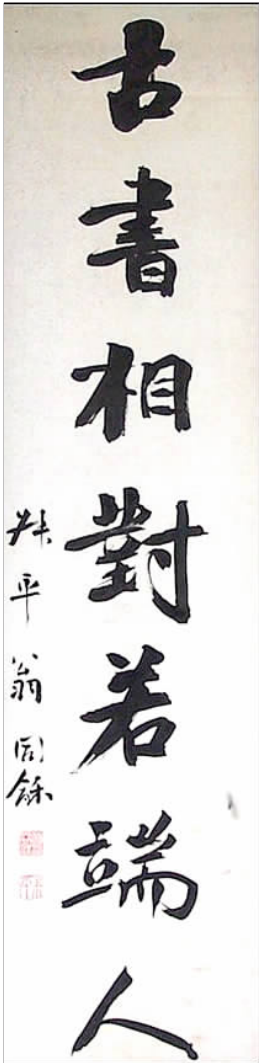 古書相對若端人
叔平翁同龢